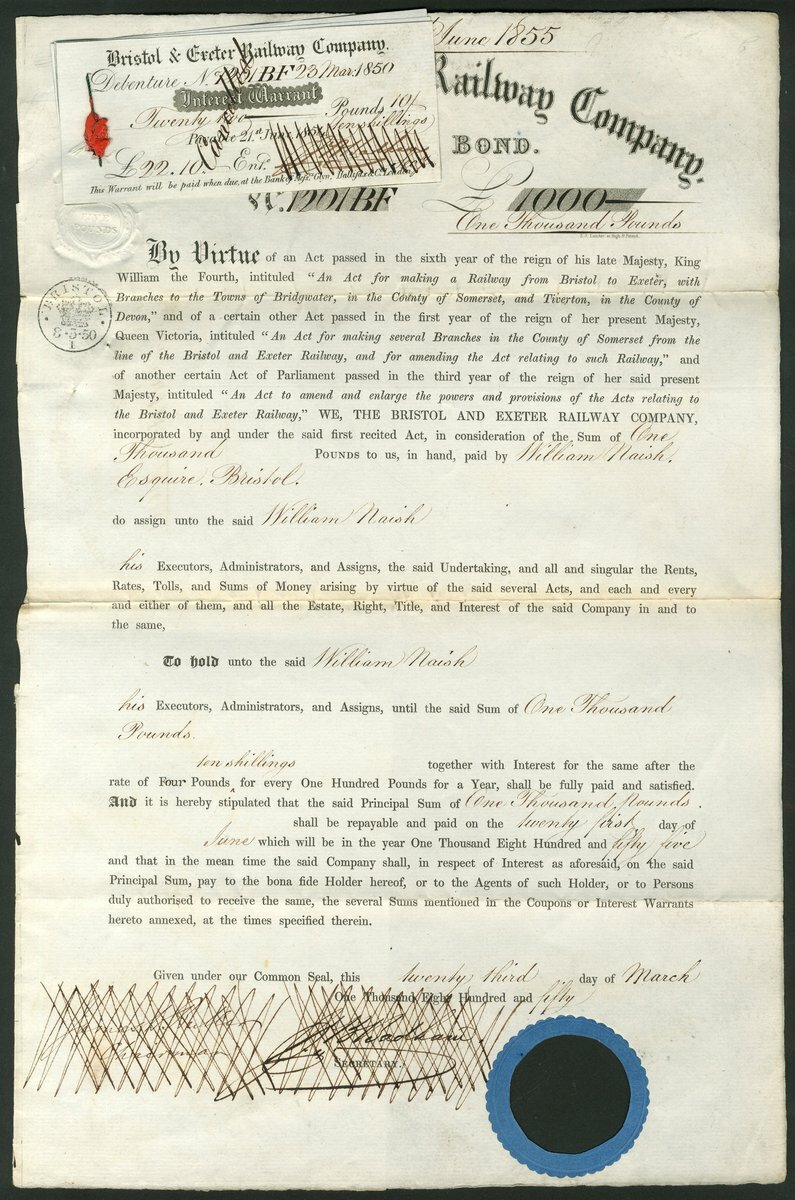 June 1855
Railway Company.
BOND.
Bristol & Exeter Railway Company.
Debenture No. 1201 BF 23 Mar. 1850
Interest Warrant
Cancelled
Twenty two Pounds 10/
Payable 21st June 185 ten shillings
£22.10. Ent.
This Warrant will be paid when due, at the Bank of Messrs. Glyn, Hallifax & Co. London
No. 1201 BF £1000
One Thousand Pounds
FIVE
POUNDS
BRISTOL
8·3·50
1
By Virtue of an Act passed in the sixth year of the reign of his late Majesty, King
William the Fourth, intituled "An Act for making a Railway from Bristol to Exeter, with
Branches to the Towns of Bridgwater, in the County of Somerset, and Tiverton, in the County of
Devon," and of a certain other Act passed in the first year of the reign of her present Majesty,
Queen Victoria, intituled "An Act for making several Branches in the County of Somerset from the
line of the Bristol and Exeter Railway, and for amending the Act relating to such Railway," and
of another certain Act of Parliament passed in the third year of the reign of her said present
Majesty, intituled "An Act to amend and enlarge the powers and provisions of the Acts relating to
the Bristol and Exeter Railway," WE, THE BRISTOL AND EXETER RAILWAY COMPANY,
incorporated by and under the said first recited Act, in consideration of the Sum of One
Thousand POUNDS to us, in hand, paid by William Naish.
Esquire. Bristol.
do assign unto the said William Naish
his Executors, Administrators, and Assigns, the said Undertaking, and all and singular the Rents,
Rates, Tolls, and Sums of Money arising by virtue of the said several Acts, and each and every
and either of them, and all the Estate, Right, Title, and Interest of the said Company in and to
the same,
To hold unto the said William Naish
his Executors, Administrators, and Assigns, until the said Sum of One Thousand
Pounds.
ten shillings together with Interest for the same after the
rate of Four Pounds for every One Hundred Pounds for a Year, shall be fully paid and satisfied.
And it is hereby stipulated that the said Principal Sum of One Thousand pounds.
shall be repayable and paid on the twenty first day of
June which will be in the year One Thousand Eight Hundred and fifty five
and that in the mean time the said Company shall, in respect of Interest as aforesaid, on the said
Principal Sum, pay to the bona fide Holder hereof, or to the Agents of such Holder, or to Persons
duly authorised to receive the same, the several Sums mentioned in the Coupons or Interest Warrants
hereto annexed, at the times specified therein.
Given under our Common Seal, this twenty third day of March
One Thousand Eight Hundred and fifty
Chairman
SECRETARY.